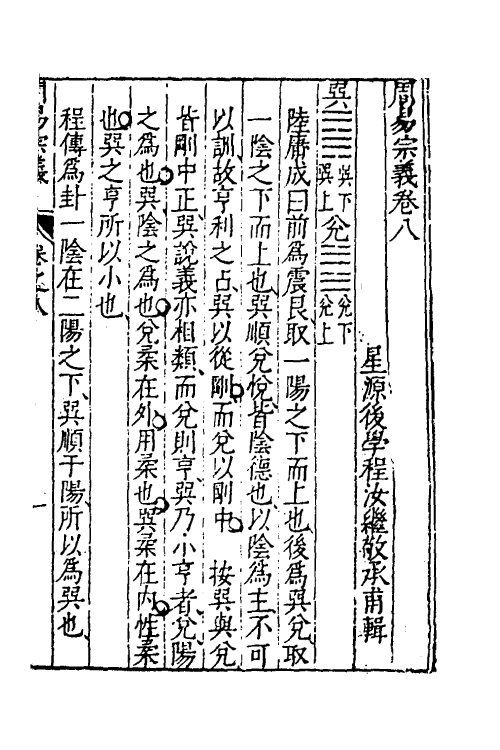 周易宗義卷八
星源後學程汝繼敬承甫輯
巽䷸巽下巽上兌䷹兌下兌上
陸庸成曰前為震艮取一陽之下而上也後為巽兌取
一陰之下而上也巽順兌悅皆陰德也以陰為主不可
以訓故亨利之占巽以從剛而兌以剛中　按巽與兌
皆剛中正巽說義亦相類而兌則亨巽乃小亨者兌陽
之為也巽陰之為也兌柔在外用柔也巽柔在內性柔
也巽之亨所以小也
程傳為卦一陰在二陽之下巽順于陽所以為巽也
周易宗義　卷之八　一